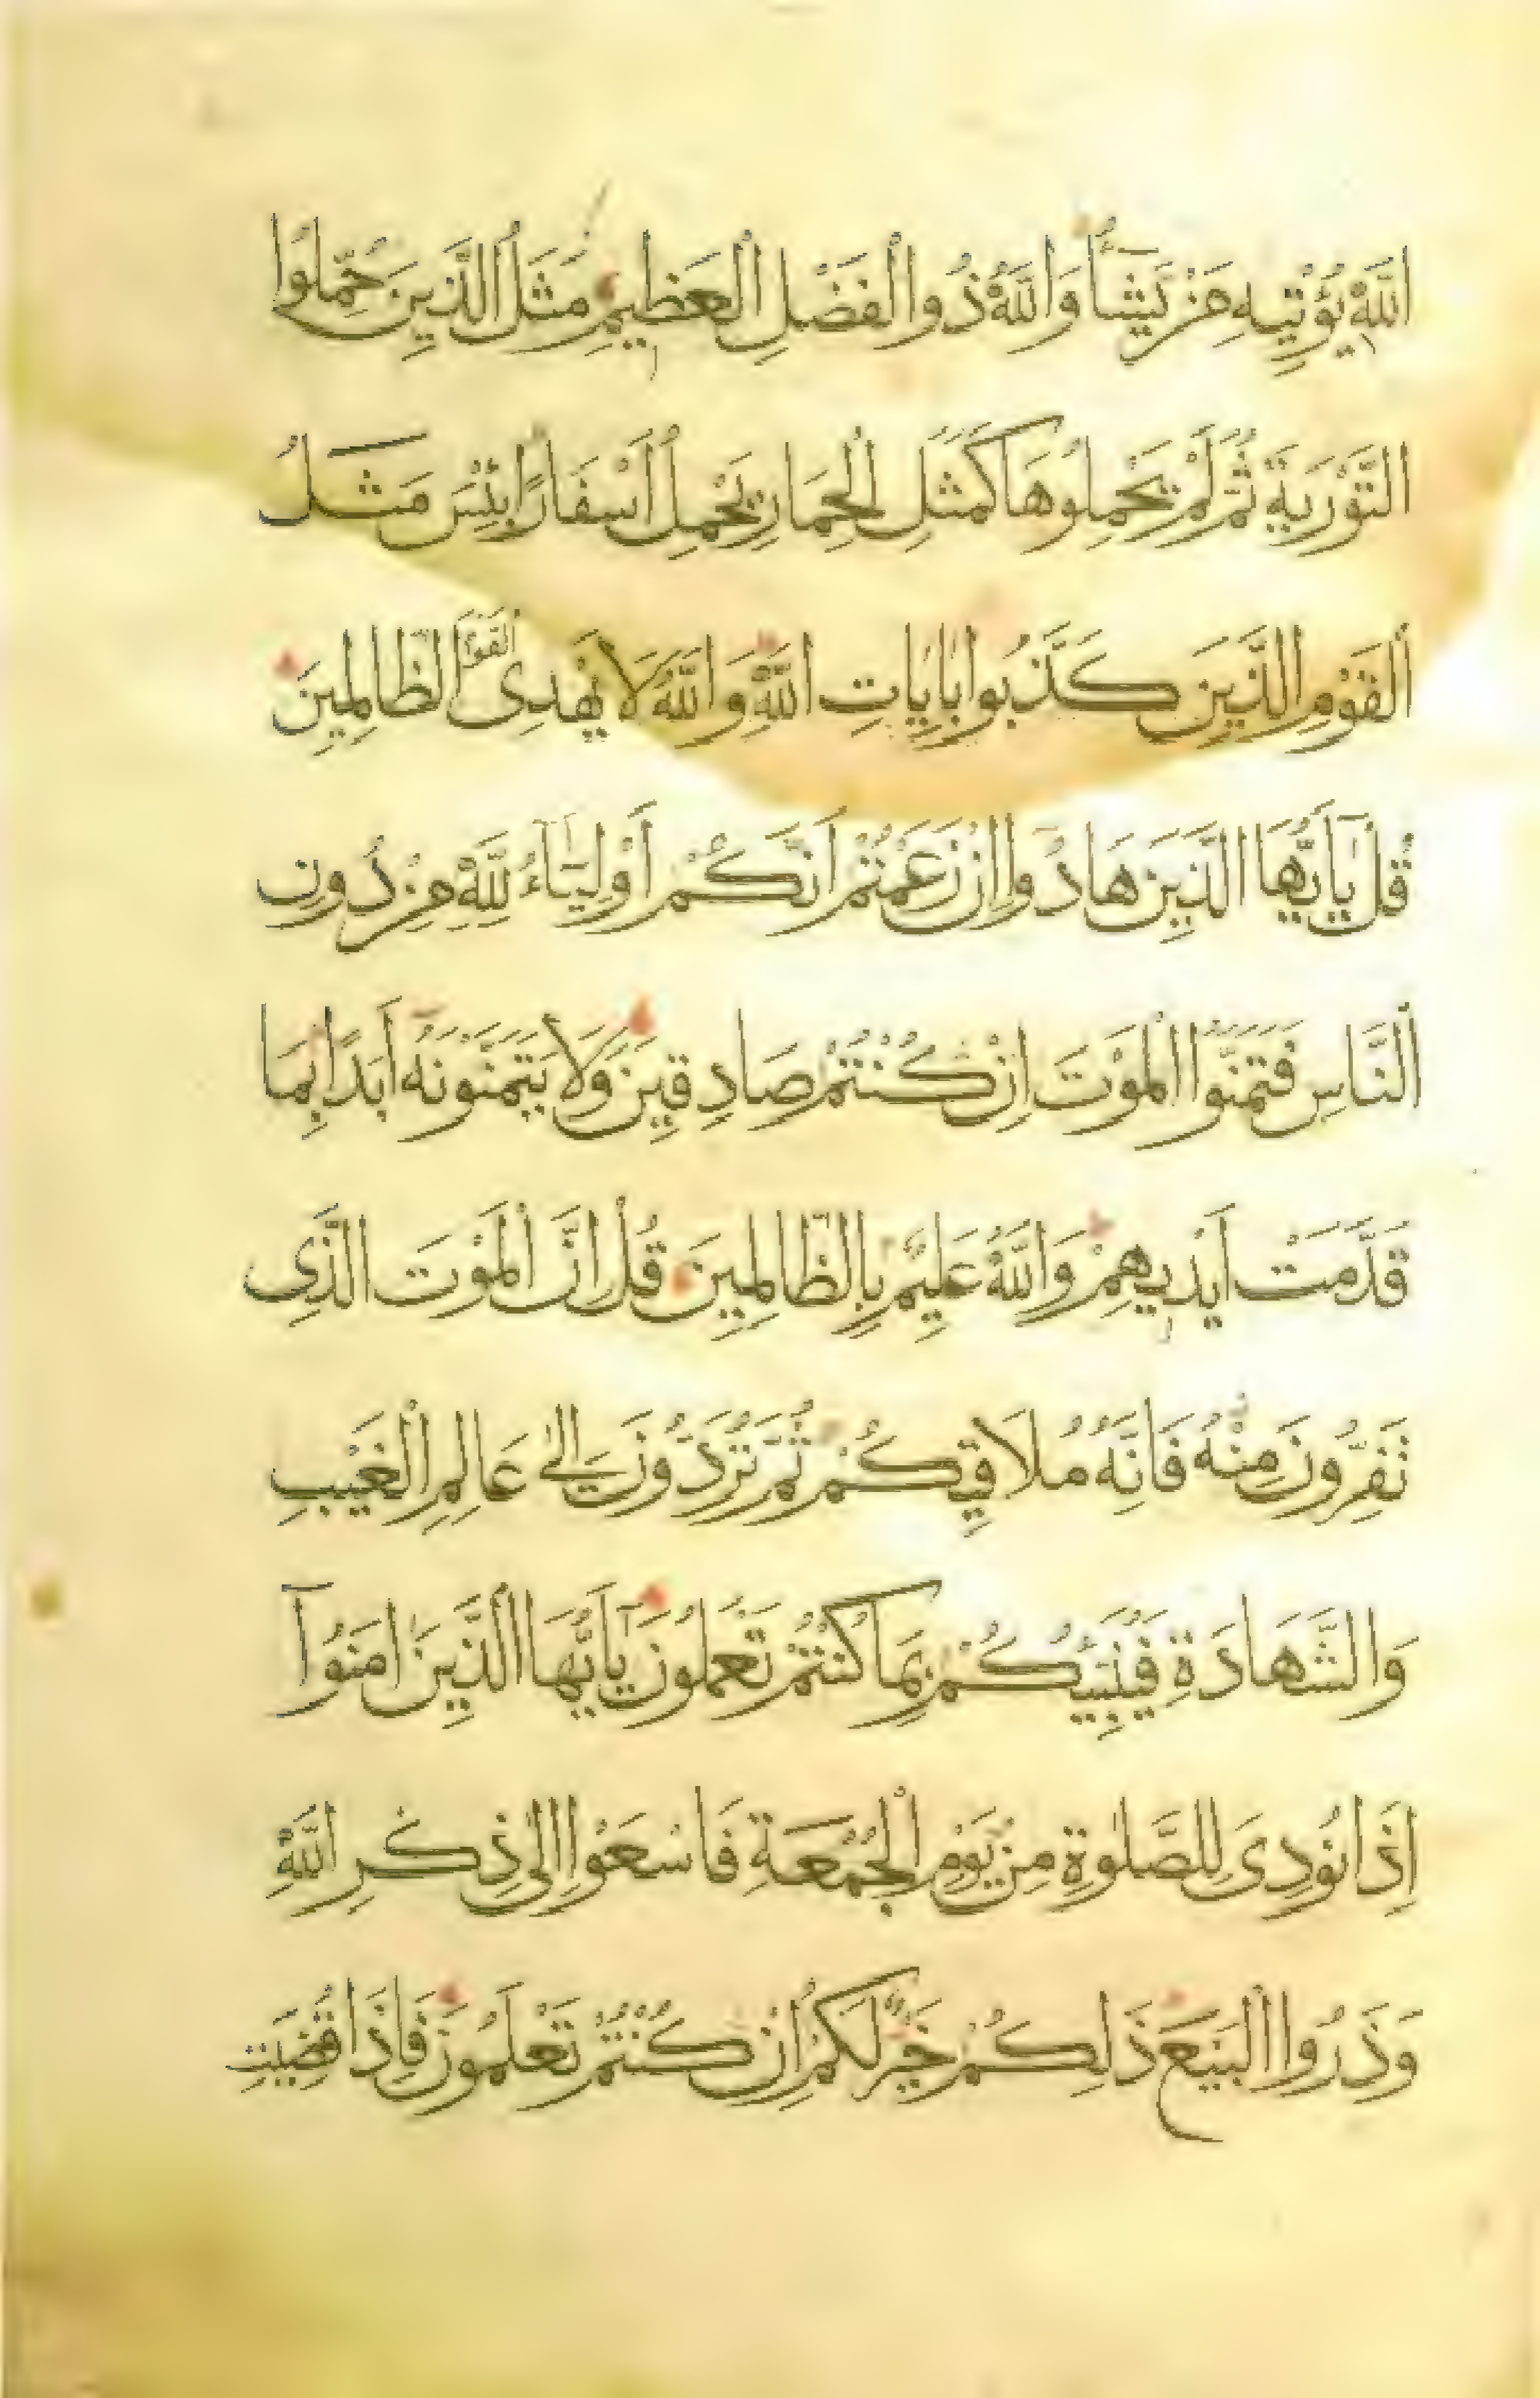 اللّٰهِ يُؤْتِيهِ مَنْ يَشَاءُ وَاللّٰهُ ذُو الْفَضْلِ الْعَظِيمِ مَثَلُ الَّذِينَ حُمِّلُوا
التَّوْرٰيةَ ثُمَّ لَمْ يَحْمِلُوهَا كَمَثَلِ الْحِمَارِ يَحْمِلُ أَسْفَارًا بِئْسَ مَثَلُ
الْقَوْمِ الَّذِينَ كَذَّبُوا بِاٰيَاتِ اللّٰهِ وَاللّٰهُ لَا يَهْدِى الْقَوْمَ الظَّالِمِينَ
قُلْ يَاأَيُّهَا الَّذِينَ هَادُوا إِنْ زَعَمْتُمْ أَنَّكُمْ أَوْلِيَاءُ لِلّٰهِ مِنْ دُونِ
النَّاسِ فَتَمَنَّوُا الْمَوْتَ إِنْ كُنْتُمْ صَادِقِينَ وَلَا يَتَمَنَّوْنَهُ أَبَدًا بِمَا
قَدَّمَتْ أَيْدِيهِمْ وَاللّٰهُ عَلِيمٌ بِالظَّالِمِينَ قُلْ إِنَّ الْمَوْتَ الَّذِى
تَفِرُّونَ مِنْهُ فَإِنَّهُ مُلَاقِيكُمْ ثُمَّ تُرَدُّونَ إِلٰى عَالِمِ الْغَيْبِ
وَالشَّهَادَةِ فَيُنَبِّئُكُمْ بِمَا كُنْتُمْ تَعْمَلُونَ يَاأَيُّهَا الَّذِينَ اٰمَنُوآ
إِذَا نُودِىَ لِلصَّلٰوةِ مِنْ يَوْمِ الْجُمُعَةِ فَاسْعَوْا إِلٰى ذِكْرِ اللّٰهِ
وَذَرُوا الْبَيْعَ ذَلِكُمْ خَيْرٌ لَكُمْ إِنْ كُنْتُمْ تَعْلَمُونَ فَإِذَا قُضِيَتِ